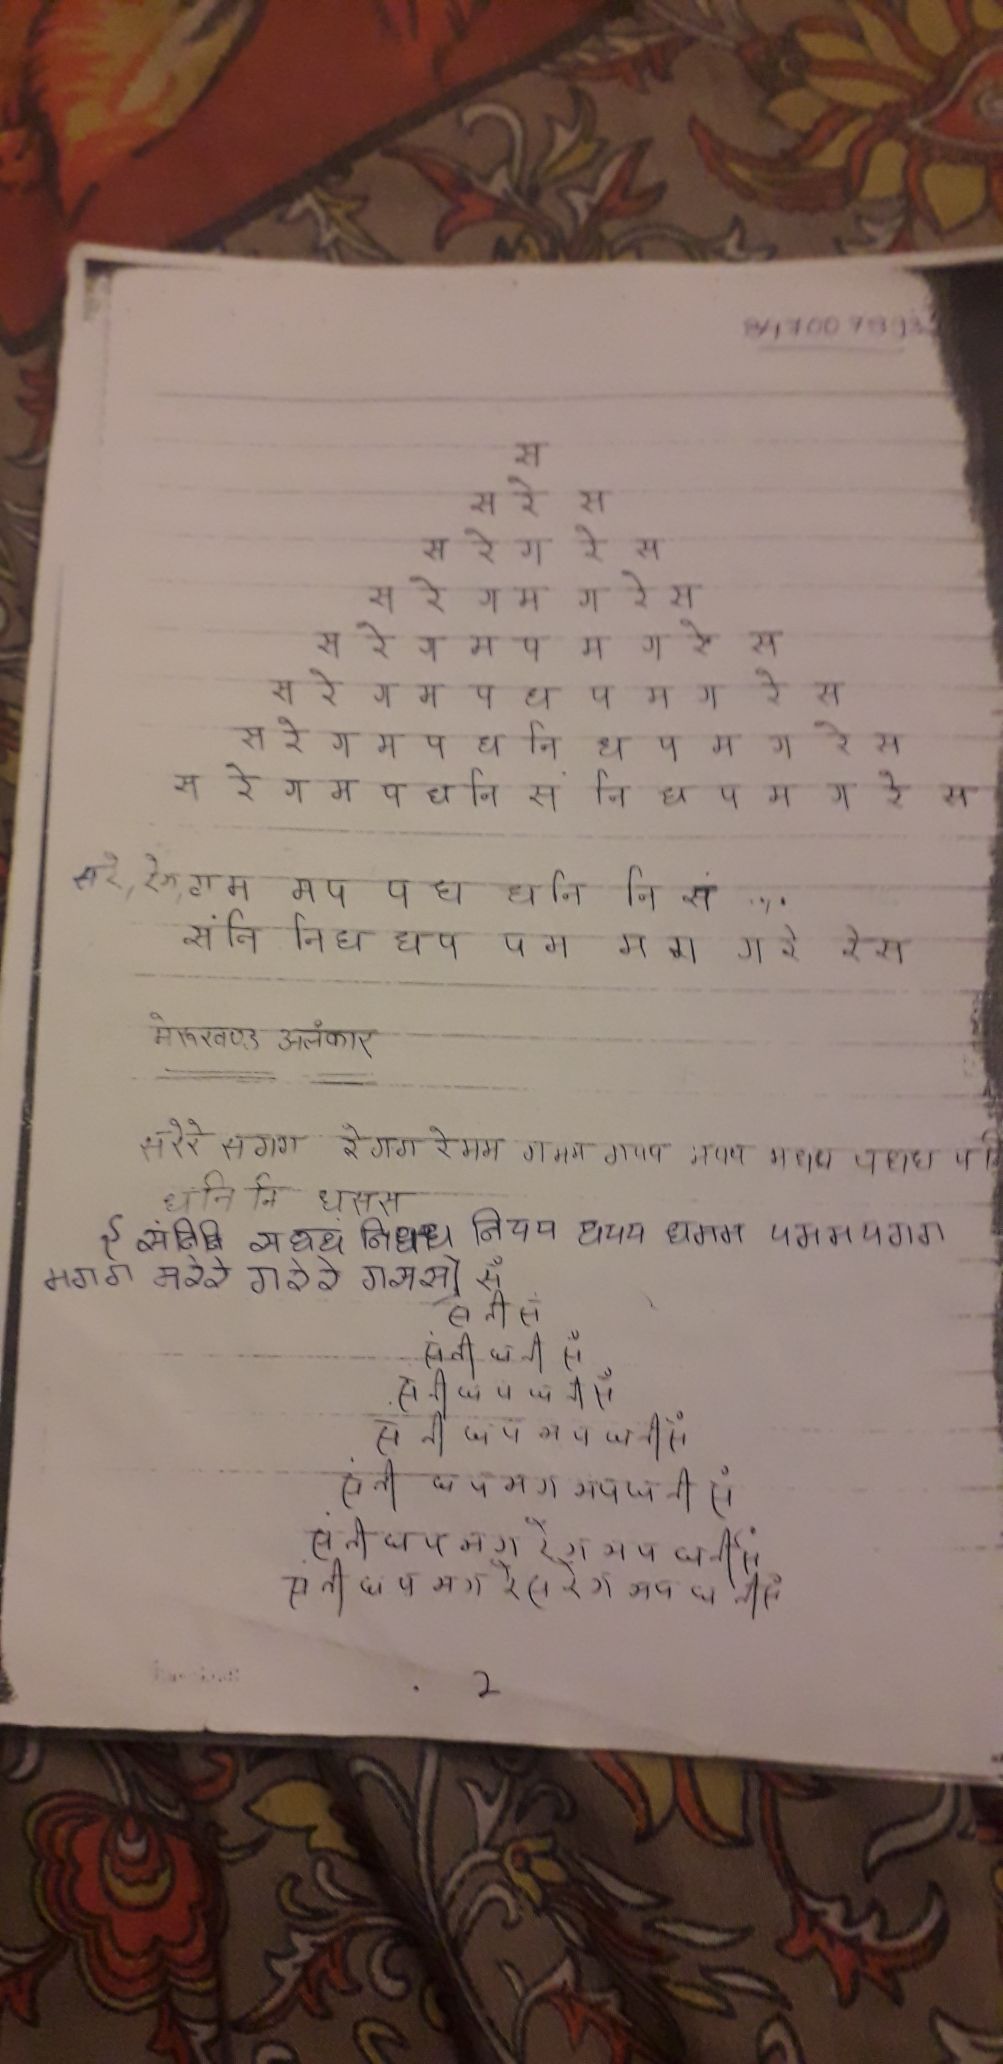 स
स रे स
स रे ग रे स
स रे ग म ग रे स
स रे ग म प म ग रे स
स रे ग म प ध प म ग रे स
स रे ग म प ध नि ध प म ग रे स
स रे ग म प ध नि सं नि ध प म ग रे स
सरे, रेग, गम मप पध धनि निसं
संनि निध धप पम मग गरे रेस
मेरूखण्ड अलंकार
सरेरे सगग रेगग रेमम गमम गपप मपप मधध पधध
धनिनि धसस
निधध निपप धपप धमम पमम पगग
मगग मरेरे गरेरे
स नी सं
सं नी ध नी सं
सं नी ध प ध नी सं
सं नी ध प म प ध नी सं
सं नी ध प म ग म प ध नी सं
सं नी ध प म ग रे ग म प ध नी सं
सं नी ध प म ग रे स रे ग म प ध नी सं
2